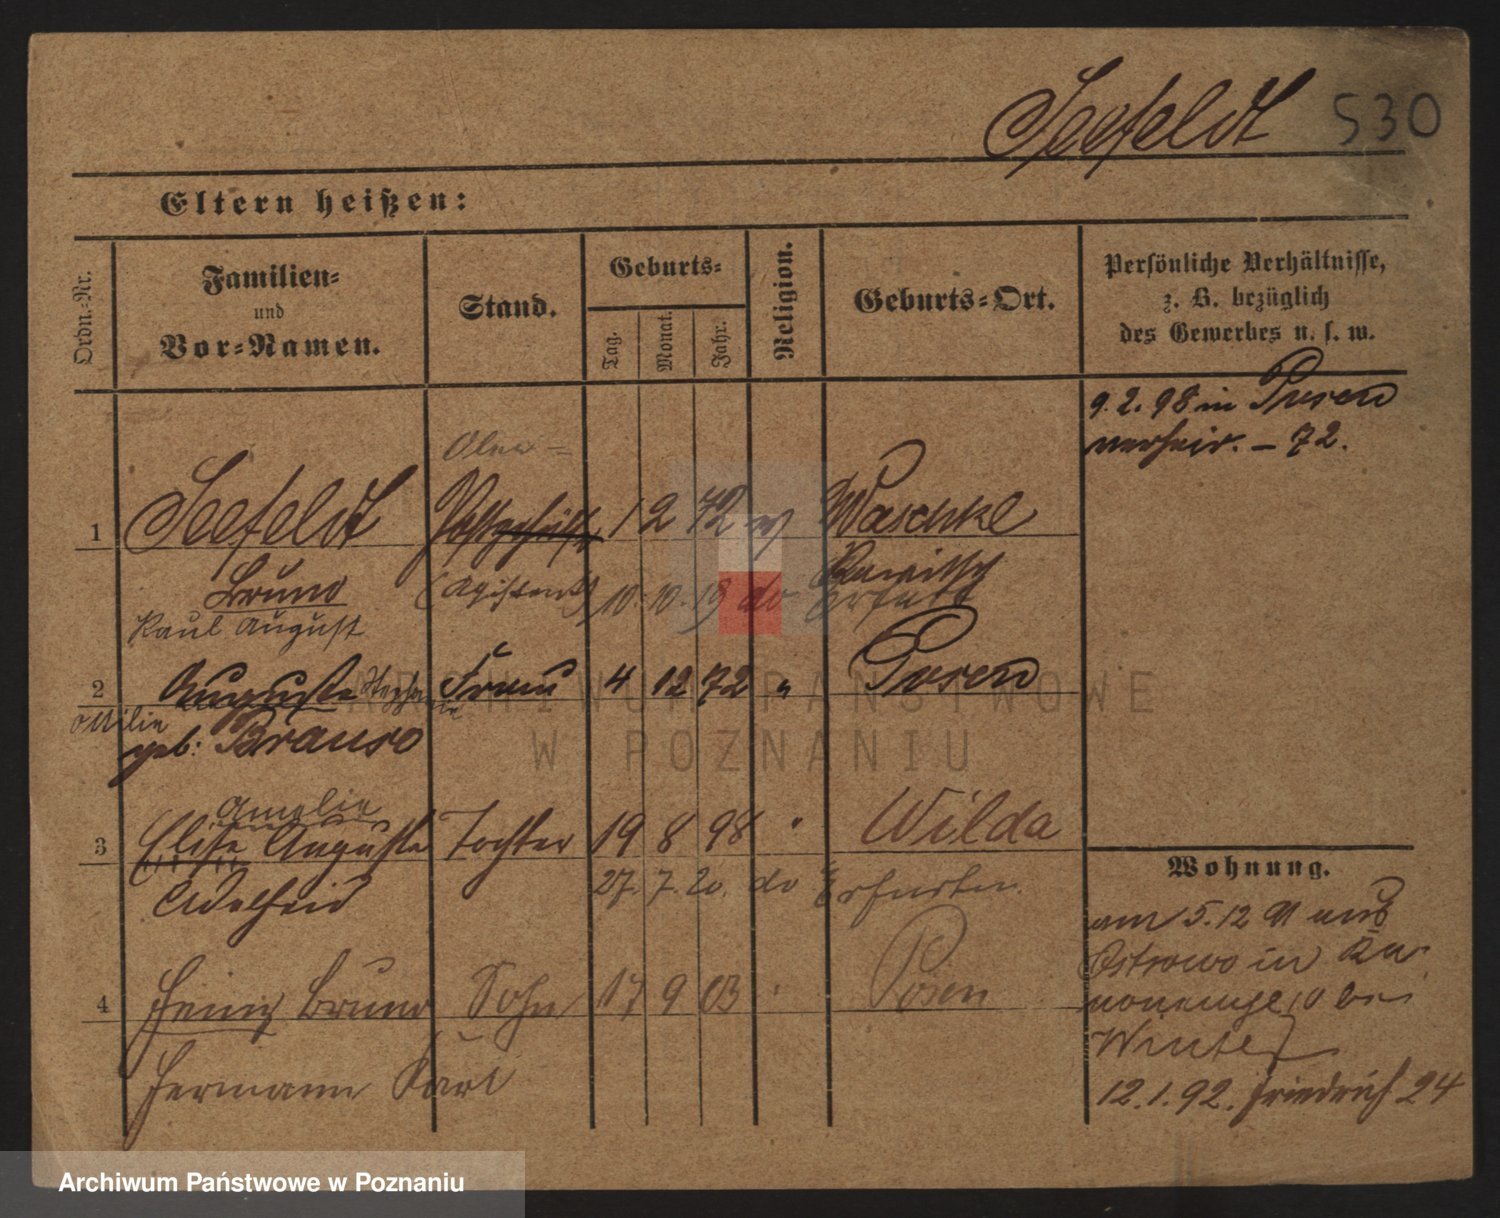 Seefeldt 530
Eltern heißen:
Ordn.-Nr.
Familien-
und
Vor-Namen.
Stand.
Geburts-
Tag.
Monat.
Jahr.
Religion.
Geburts-Ort.
Persönliche Verhältnisse,
z. B. bezüglich
des Gewerbes u. s. w.
9. 2. 98 in Posen
verheir. - 72.
Ober-
1 Seefeldt 1 2 72 Waschke
Bruno (Assistent) 10. 10. 19 do Rawitsch
Erfurt
Paul August
2 Auguste Frau 4 12 72 " Posen
Ottilie
geb: Brauso
Amalie
3 Elise Auguste Tochter 19 8 98 " Wilda
Adelheid 27. 7. 20. do
4 Bruno Sohn 17 9 03 " Posen
Hermann Karl
Wohnung.
am 5. 12 91 aus
Ostrowo in Ka-
nonenpl 10 bei
Winter
12. 1. 92. Friedrich 24
ARCHIWUM PAŃSTWOWE
W POZNANIU
Archiwum Państwowe w Poznaniu